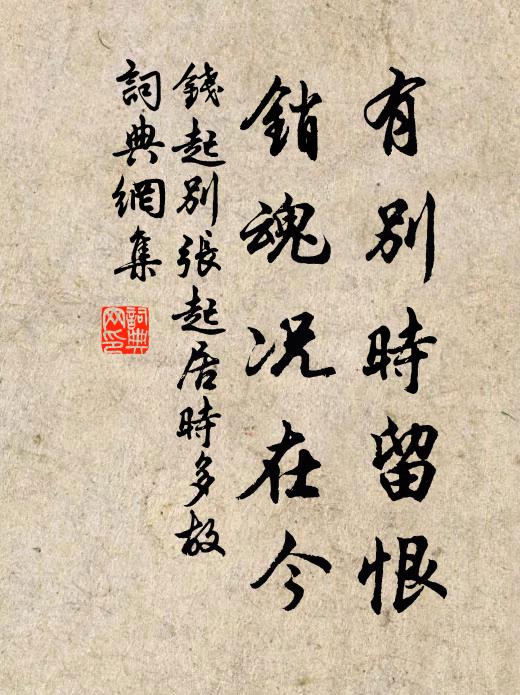 有別時留恨
銷魂況在今
錢起別張起居時多故
詞典網集
詞典
网印